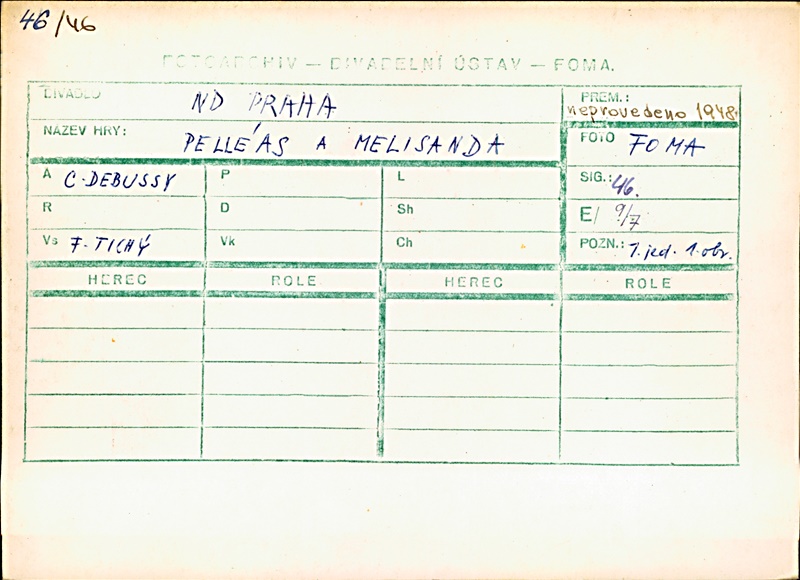 46/46
FOTOARCHIV — DIVADELNÍ ÚSTAV — FOMA.
DIVADLO ND PRAHA
PREM.: neprovedeno 1948
NÁZEV HRY: PELLÉAS A MELISANDA
FOTO FOMA
A C. DEBUSSY P L SIG.: 46.
R D Sh E/ 9/7
Vs F. TICHÝ Vk Ch POZN.: 1. jed. 1. obr.
HEREC ROLE HEREC ROLE